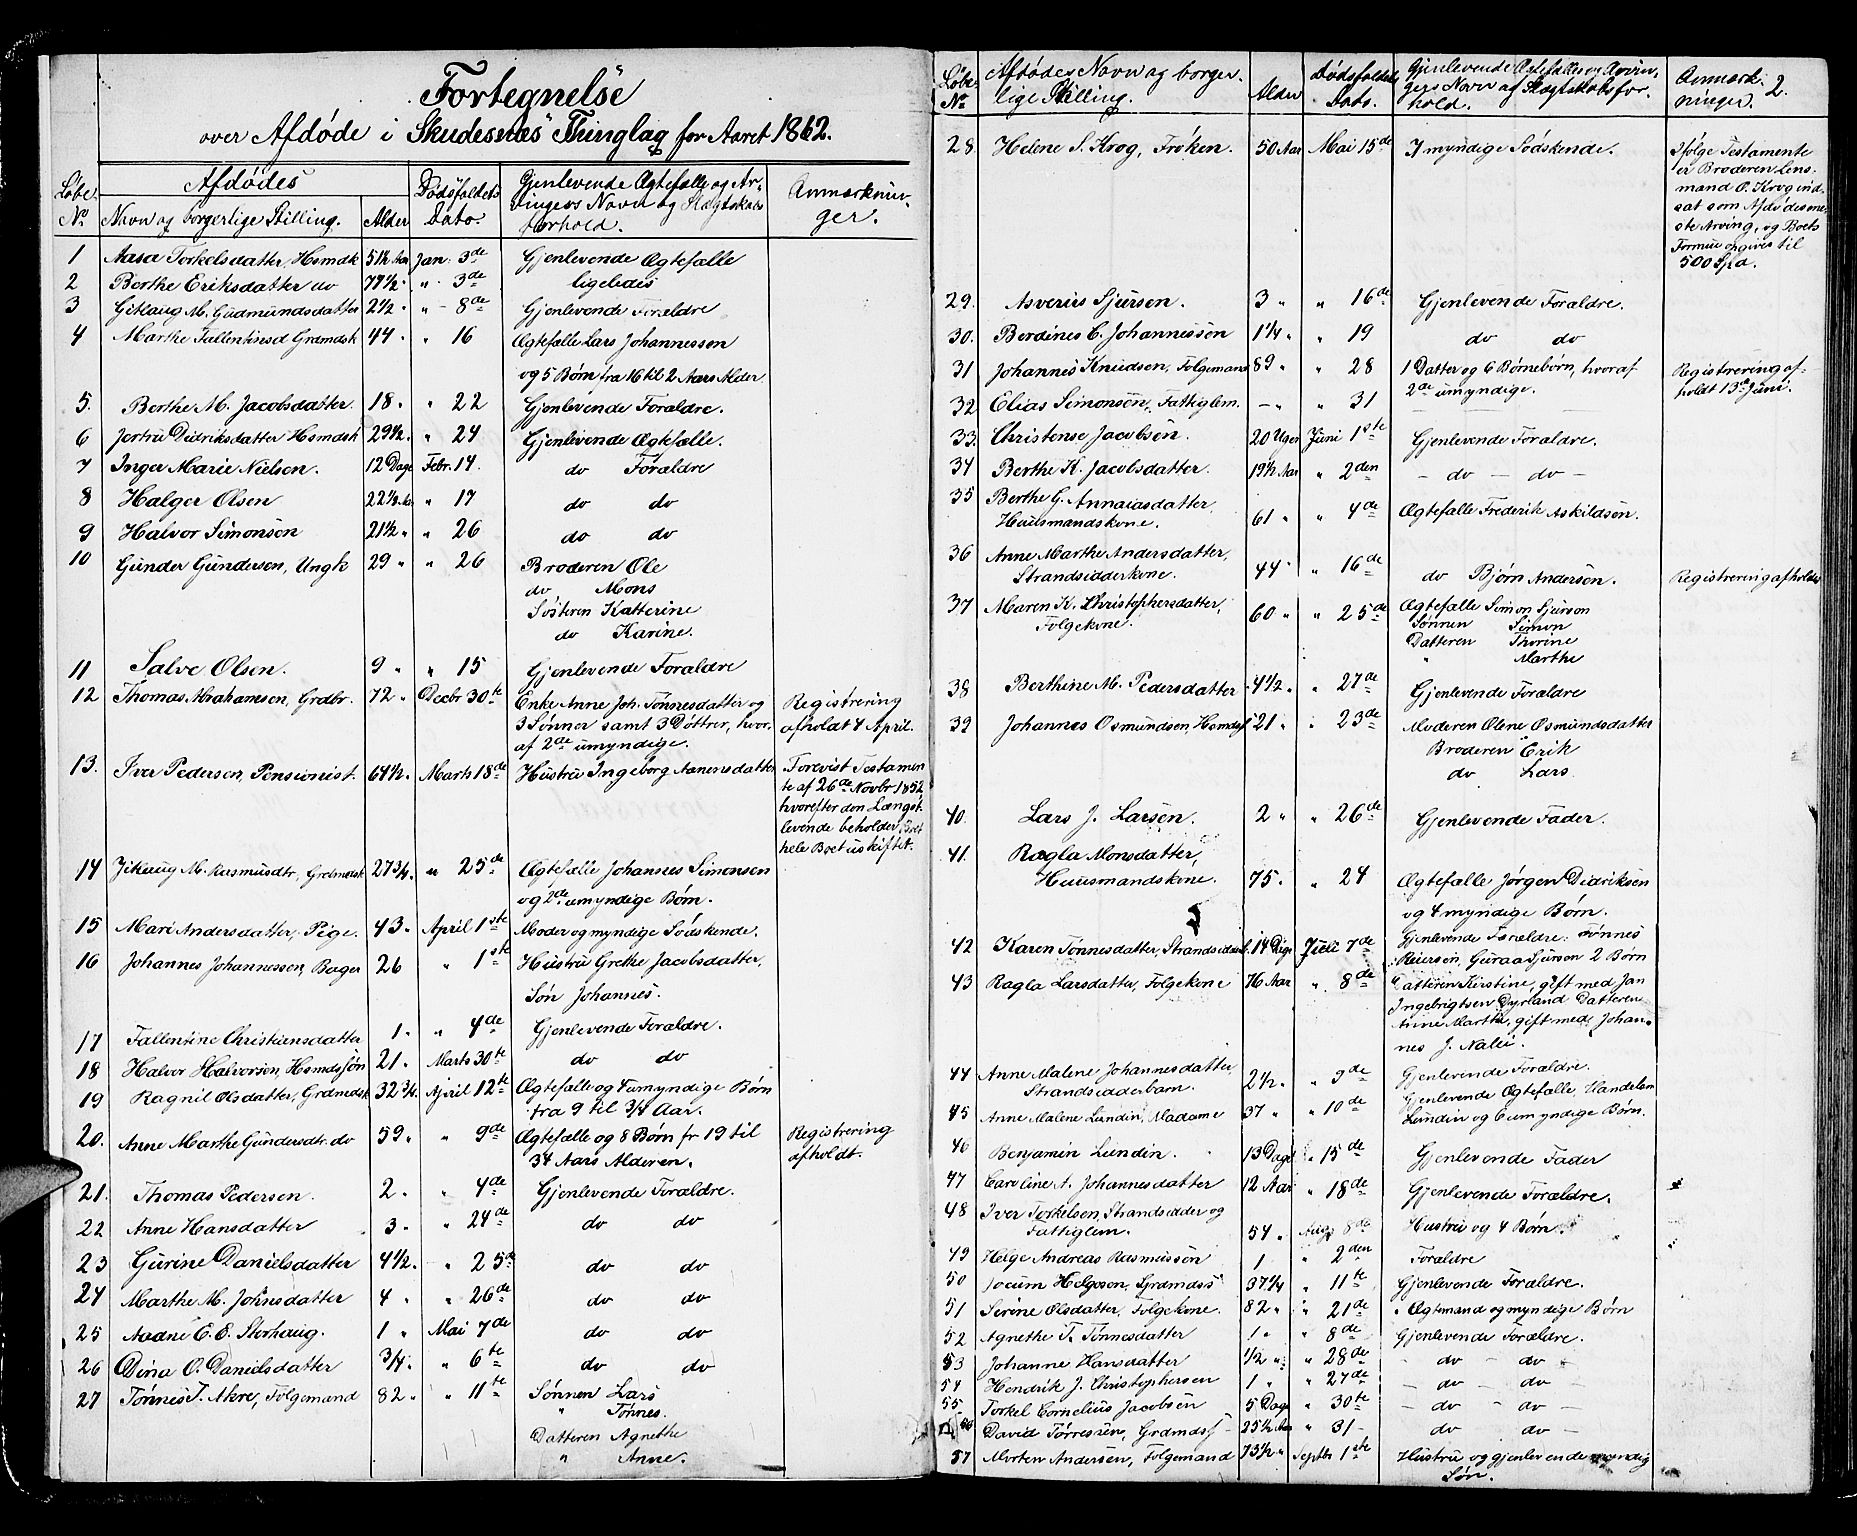 Fortegnelse
over Afdøde i Skudesnæs Thinglag for Aaret 1862.
Løbe No. | Afdødes Navn og borgerlige Stilling. | Alder | Dødsfaldets Dato. | Gjenlevende Ægtefælle og Arvingers Navn og Slægtskabsforhold. | Anmærkninger.
1 Aasa Torkelsdatter, Hsmdk 51½ Aar Jan. 3de Gjenlevende Ægtefælle
2 Berthe Eriksdatter do 77½ " " 3de ligeledes
3 Gitlaug M. Gudmundsdatter 2½ " " 8de Gjenlevende Forældre
4 Marthe Fallentinsd Grdmdsk 44 " " 16 Ægtefælle Lars Johannessen
og 5 Børn fra 16 til 2 Aars Alder.
5. Berthe M. Jacobsdatter. 18 " " 22 Gjenlevende Forældre.
6 Jertru Didriksdatter Hsmdsk 29½ " " 24 Gjenlevende Ægtefælle.
7 Inger Marie Nielsen. 12 Dage Febr. 14. do Forældre
8 Halger Olsen 22½ Aar " 17 do do
9 Halvor Simonsen 21½ " " 26 do do
10 Gunder Gundersen, Ungk 29 " " 26 Broderen Ole
do Mons
Søsteren Katterine
do Karine.
11 Salve Olsen. 9 " " 15 Gjenlevende Forældre
12 Thomas Abrahamsen, Grdbr. 72 " Decbr 30te Enke Anne Joh. Tønnesdatter og Registrering
3 Sønner samt 3 Døttre, hvor- afholdt 4 April.
af 2de umyndige.
13. Iver Pedersen, Pensionist. 64½ " Marts 18de Hustru Ingeborg Aanensdatter Forevist Testamen-
te af 26de Novbr 1852
hvorefter den Længst-
levende beholder Boet
hele Boet uskiftet.
14 Jitlaug M. Rasmusdtr, Grdmdsk 27¾ " " 25de Ægtefælle Johannes Simonsen
og 2de umyndige Børn.
15 Mari Andersdatter, Pige. 43 " April 1ste Moder og myndige Sødskende.
16 Johannes Johannessen, Bager 26 " 1ste Hustru Grethe Jacobsdatter,
Søn Johannes.
17 Fallentine Christiensdatter 1 " " 4de Gjenlevende Forældre.
18 Halvor Halvorsen, Hsmdssøn 21 " Marts 30te do do
19 Ragnil Olsdatter, Grdmdsk 32¾ " April 12te Ægtefælle og 4 umyndige Børn
fra 9 til ¾ Aar.
20. Anne Marthe Gundersdtr. do 59 " " 9de Ægtefælle og 8 Børn fr 19 til Registrering
34 Aars Alderen. afholdt.
21. Thomas Pedersen. 2 " " 4de Gjenlevende Forældre.
22 Anne Hansdatter 3 " " 24de do do
23 Gurine Danielsdatter 4½ " " 25de do do
24 Marthe M. Johnsdatter 4 " " 26de do do
25 Aadne E. E. Storhaug. 1 " Mai 7de do do
26 Dina O. Danielsdatter ¾ " " 6te do do
27 Tønnes T. Akre, Folgemand 82 " " 11te Sønnen Lars
" Tønnes.
Datteren Agnethe
" Anne.
Løbe No | Afdødes Navn og borgerlige Stilling. | Alder | Dødsfaldets Dato. | Gjenlevende Ægtefælles og Arvingers Navn og Slægtskabsforhold. | Anmærkninger. 2.
28 Helene S. Krog, Frøken. 50 Aar Mai 15de 7 myndige Sødskende. Ifølge Testamente
er Broderen Lens-
mand O. Krog ind-
sat som Afdødes ene-
ste Arving, og Boets
Formue opgives til
500 Spd.
29. Asverius Sjursen. 3 " " 16de Gjenlevende Forældre.
30. Berdines C. Johannessen 1¼ " " 19 do do
31 Johannes Knudsen, Folgemand 89 " " 28 1 Datter og 6 Børnebørn, hvoraf Registrering af-
2de umyndige. holdt 13de Juni.
32 Elias Simonsen, Fattiglem. – " " 31
33. Christense Jacobsen. 20 Uger Juni 1ste Gjenlevende Forældre.
34 Berthe K. Jacobsdatter. 19½ Aar " 2den – do – do –
35 Berthe G. Annaiasdatter
Huusmandskone. 61 " " 4de Ægtefælle Frederik Askildsen.
36 Anne Marthe Andersdatter,
Strandsidderkone. 44 " " 16de do Bjørn Andersen. Registrering afholdt
37 Maren K. Christophersdatter, Ægtefælle Simon Sjurson
Folgekone. 60 " " 25de Sønnen Simon
Datteren Thorine
" Marthe
38 Berthine M. Pedersdatter 4½ " " 27de Gjenlevende Forældre
39 Johannes Osmundsen, Hsmdsf 21 " " 23de Moderen Olene Osmundsdatter
Broderen Erik
do Lars.
40. Lars J. Larsen. 2 " " 26de Gjenlevende Fader.
41. Ragla Monsdatter,
Huusmandskone. 75. " 24 Ægtefælle Jørgen Didriksen
og 4 myndige Børn.
42 Karen Tønnesdatter, 14 Dage Juli 7de Gjenlevende Forældre: Tønnes
Reiersen, Guraa Sjursen 2 Børn
43 Ragla Larsdatter, Folgekone 76 Aar " 8de Datteren Kirstine, gift med Jan
Ingebrigtsen Dyrland Datteren
Anne Marthe, gift med Johan-
nes J. Nalei.
44 Anne Malene Johannesdatter
Strandsidderbarn. 2½ " " 9de Gjenlevende Forældre.
45 Anne Malene Lundin, Madame 37 " " 10de Gjenlevende Ægtefælle, Handelsm
Lundin og 6 umyndige Børn.
46 Benjamin Lundin. 13 Dage " 15de Gjenlevende Fader
47 Caroline A. Johannesdatter 12 Aar " 18de Gjenlevende Forældre.
48 Iver Torkelsen, Strandsidder og
Fattiglem. 54 " Aug. 8de Hustru og 4 Børn
49 Helge Andreas Rasmussen 1 " 2den Forældre
50 Jocum Helgesen, Grdmdss 37¼ " 11te Gjenlevende Forældre.
51 Serine Olsdatter, Folgekone. 82 " " 21de Ægtemand og myndige Børn
52 Agnethe T. Tønnesdatter 1 " " 8de Gjenlevende Forældre.
53 Johanne Hansdatter ½ " " 28de – do – do –
54 Hendrik J. Christophersen 1 " " 27de – do – do –
55 Torkel Cornelius Jacobsen 5 Dage " 30te – do – do –
56 David Tørressen, Grdmdsf – 25½ Aar " 31 – do do –
57 Morten Andersen, Folgemand 73½ " Septbr 1ste Hustru og gjenlevende myndig
Søn.